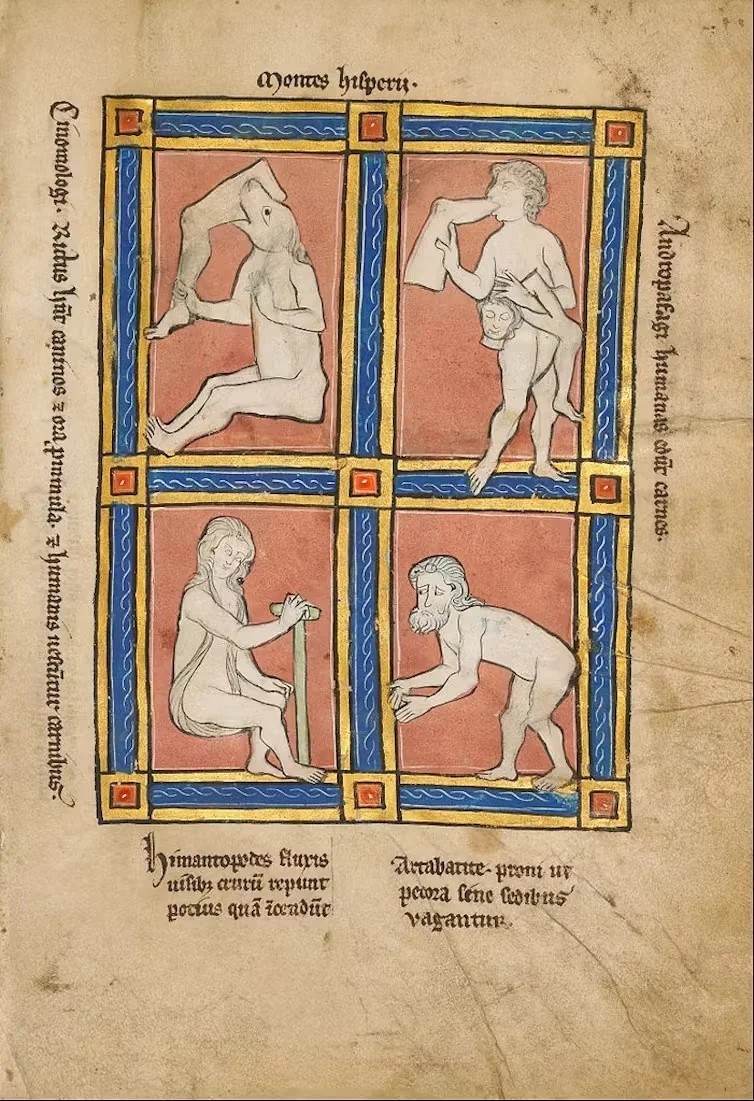 Montes hisperii.
Cinomolgi. Rictus hñt caninos ⁊ ora ꝓminula. ⁊ humanis uescũtur carnibus.
Andropafagi humanas edũt carnes.
himantopodes fluxis
uisibꝫ crurũ repunt
pocius quã ĩcedũt
Artabatite. proni ut
pecora sene sedibus
vagantur.